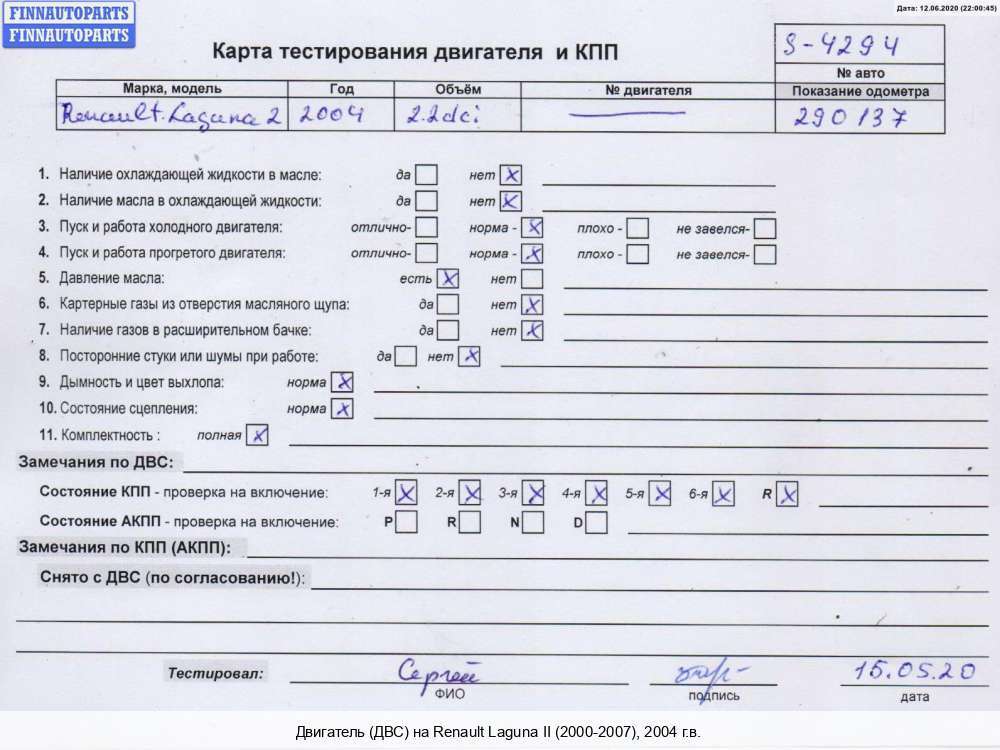 FINNAUTOPARTS
FINNAUTOPARTS
Дата: 12.06.2020 (22:00:45)
Карта тестирования двигателя и КПП
S-4294
№ авто
Марка, модель Год Объём № двигателя Показание одометра
Renault Laguna 2 2004 2.2dci 290137
1. Наличие охлаждающей жидкости в масле: да нет X
2. Наличие масла в охлаждающей жидкости: да нет X
3. Пуск и работа холодного двигателя: отлично- норма - X плохо - не завелся-
4. Пуск и работа прогретого двигателя: отлично- норма - X плохо - не завелся-
5. Давление масла: есть X нет
6. Картерные газы из отверстия масляного щупа: да нет X
7. Наличие газов в расширительном бачке: да нет X
8. Посторонние стуки или шумы при работе: да нет X
9. Дымность и цвет выхлопа: норма X
10. Состояние сцепления: норма X
11. Комплектность : полная X
Замечания по ДВС:
Состояние КПП - проверка на включение: 1-я X 2-я X 3-я X 4-я X 5-я X 6-я X R X
Состояние АКПП - проверка на включение: P R N D
Замечания по КПП (АКПП):
Снято с ДВС (по согласованию!):
Тестировал: Сергей 15.05.20
ФИО подпись дата
Двигатель (ДВС) на Renault Laguna II (2000-2007), 2004 г.в.